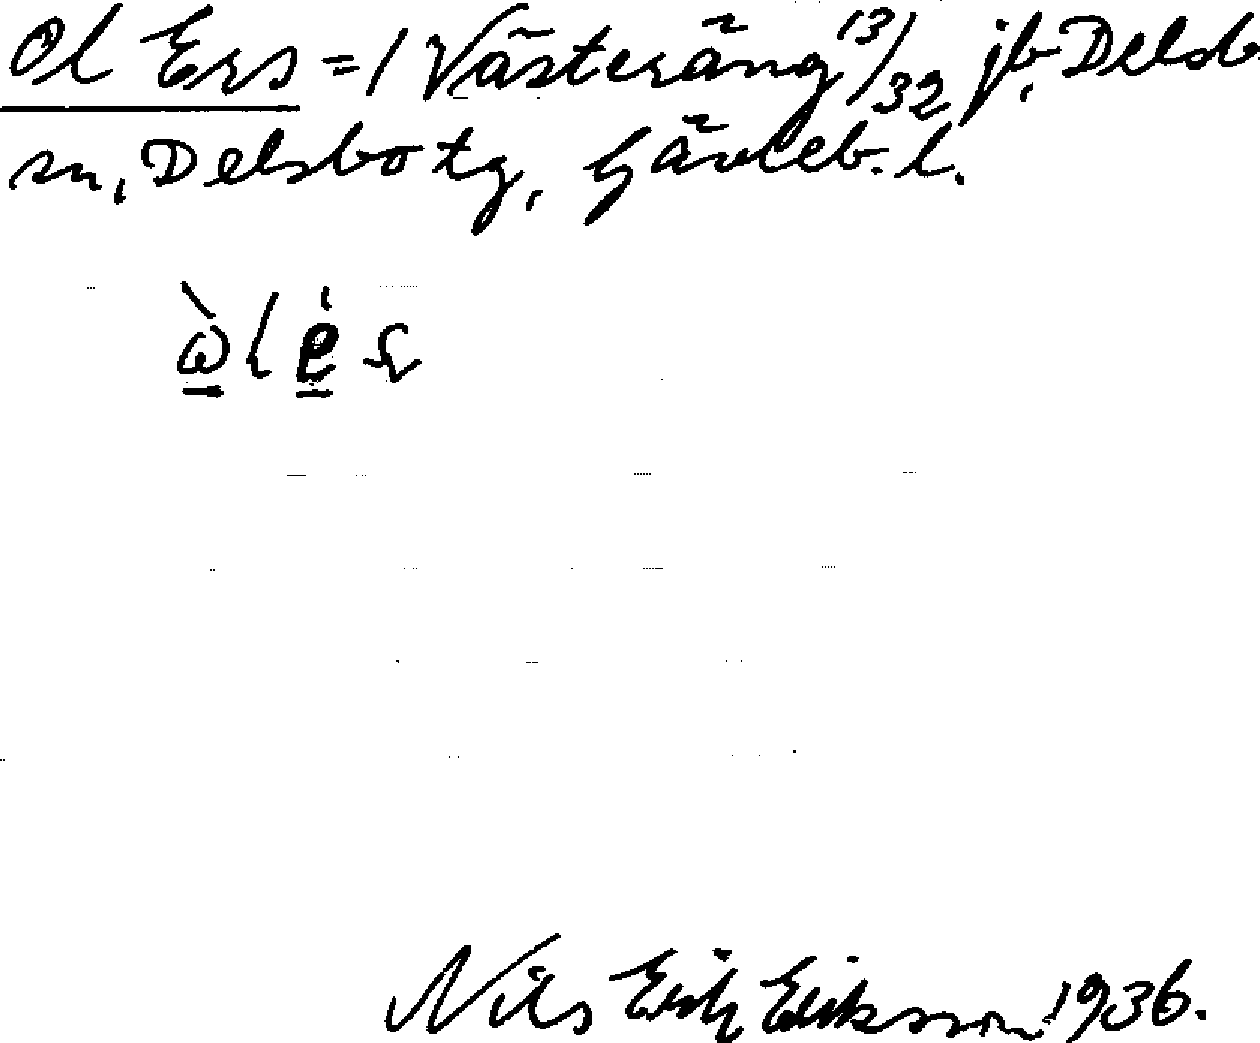 Ol Ers = 1 Västeräng 13/32 jb. Delsb.
sn, Delsbo tg, Gävleb. l.
Nils Erik Eriksson 1936.